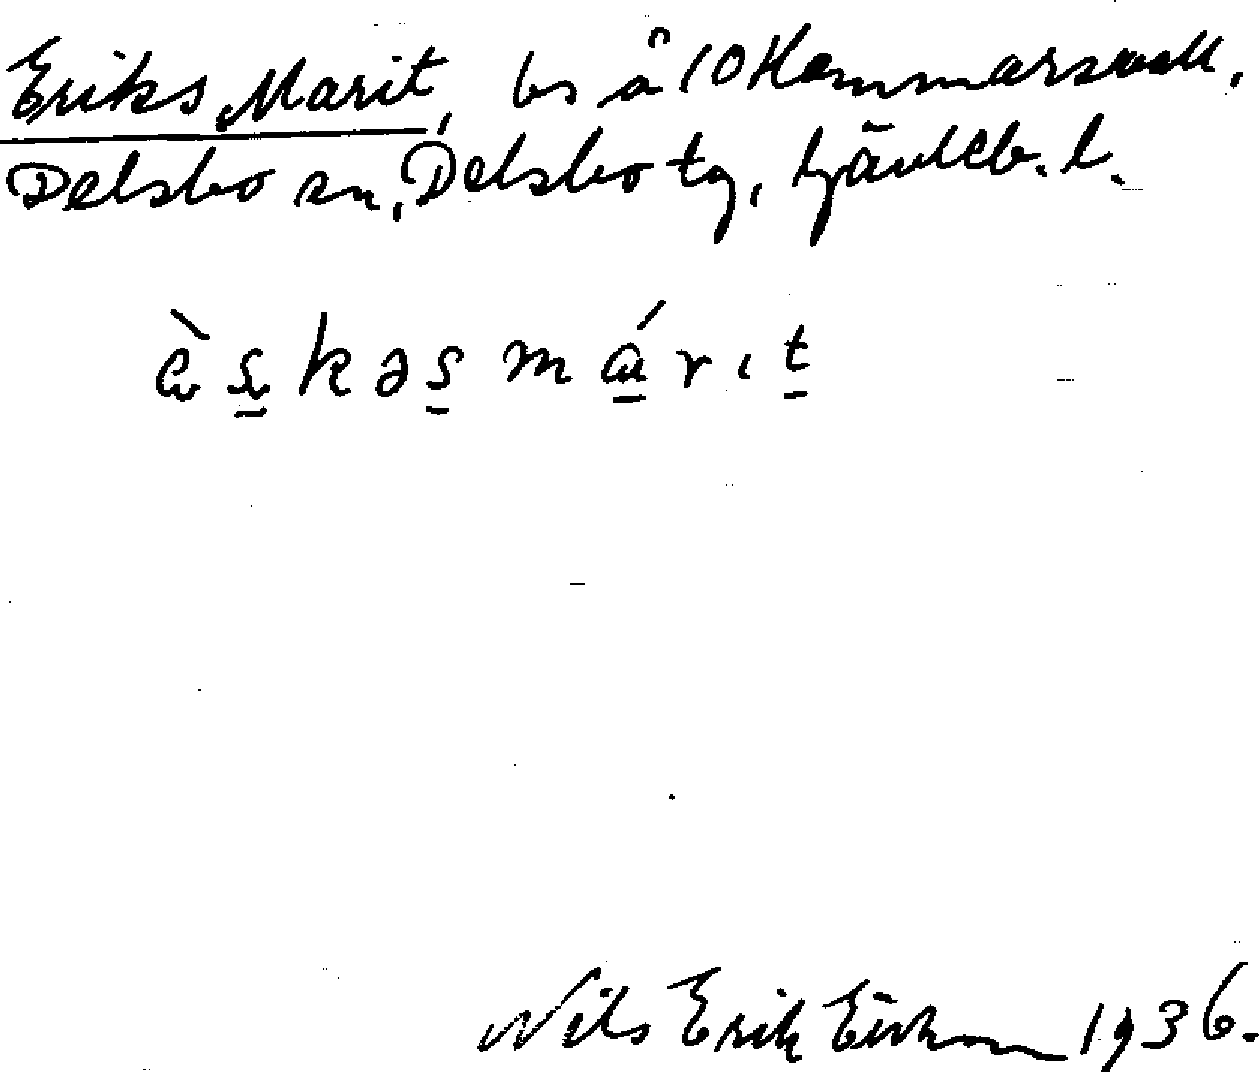 Eriks Marit, bs å 10 Hammarsvall,
Delsbo sn, Delsbo tg, Gävleb. l.
Nils Erik Eriksson 1936.